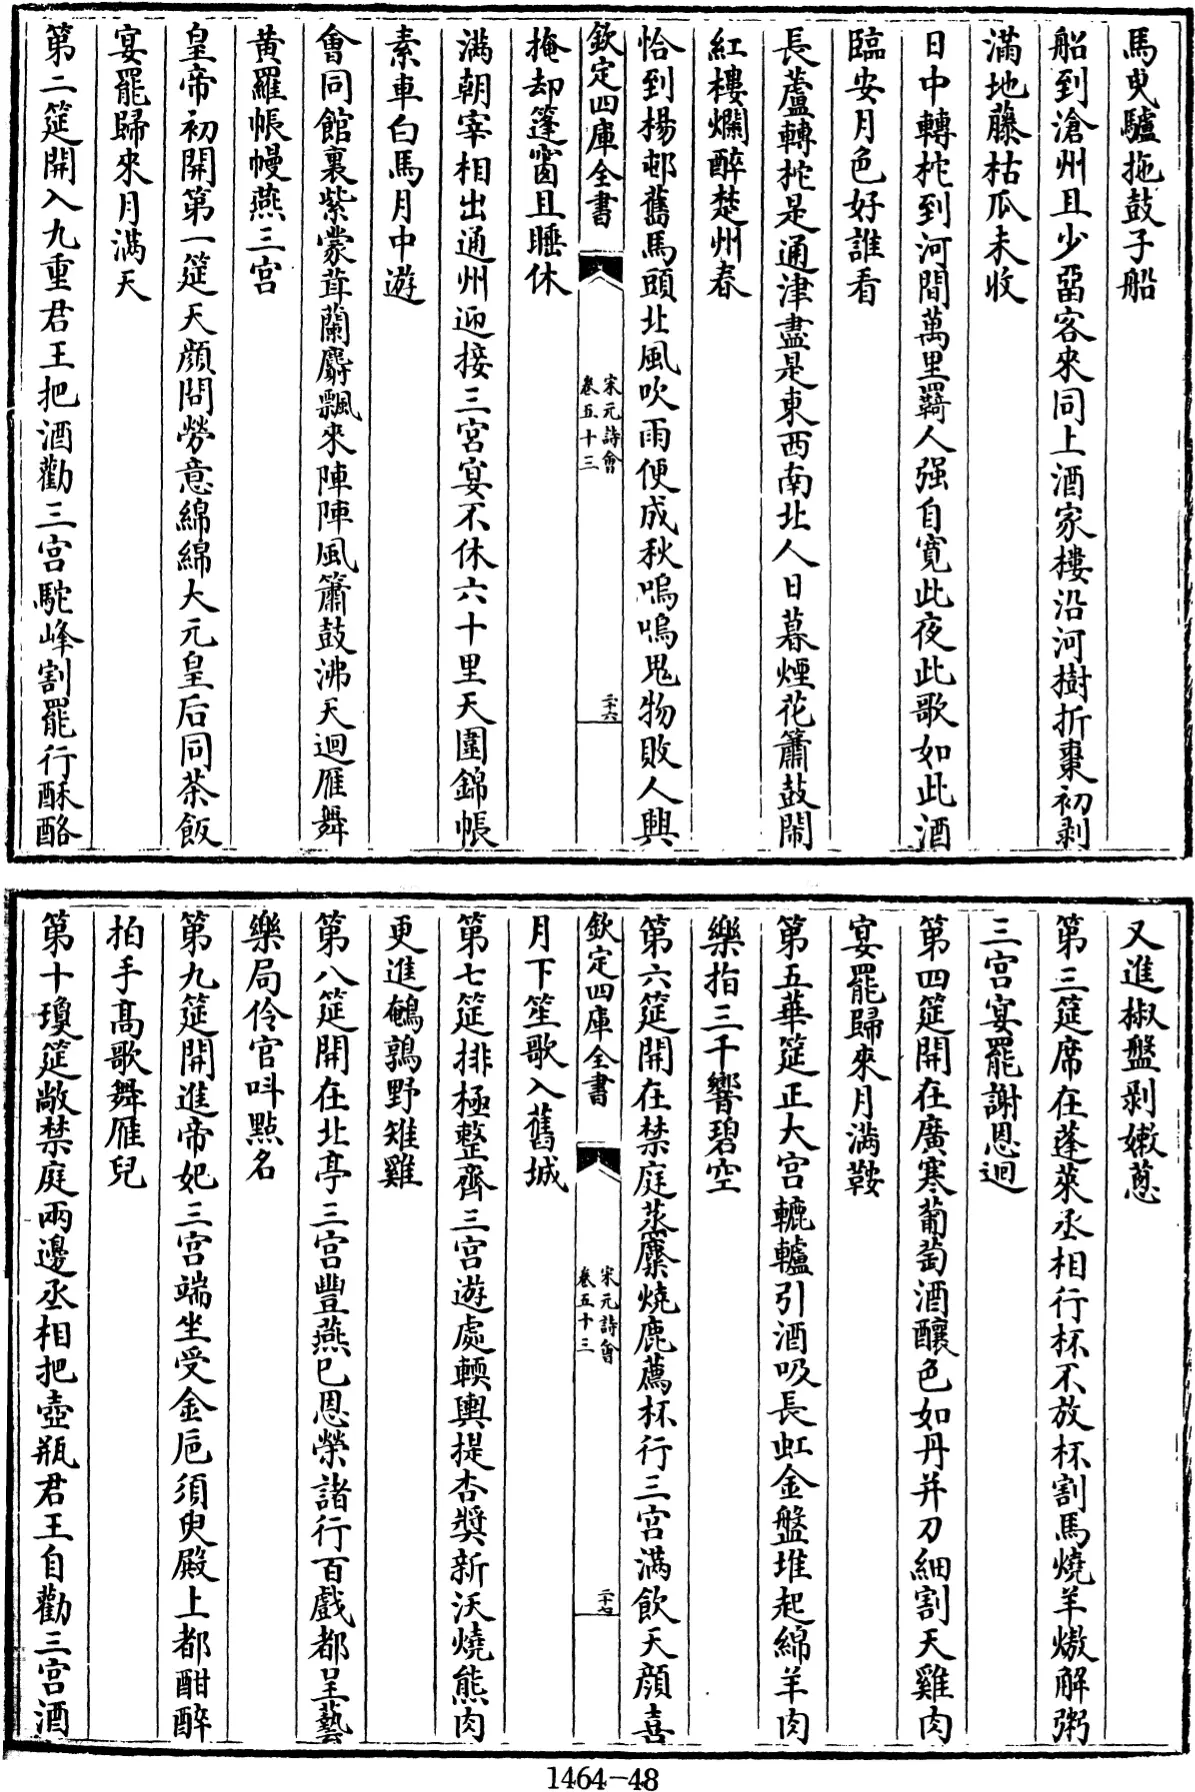 馬曳驢拖鼓子船
船到滄州且少留客來同上酒家樓沿河樹折棗初剥
滿地藤枯瓜未收
日中轉柁到河間萬里羇人强自寛此夜此歌如此酒
臨安月色好誰看
長蘆轉柁是通津盡是東西南北人日暮煙花簫鼓鬧
紅樓爛醉楚州春
恰到楊邨舊馬頭北風吹雨便成秋嗚嗚鬼物敗人興
欽定四庫全書
宋元詩會
卷五十三
二十六
掩却篷窗且睡休
滿朝宰相出通州迎接三宫宴不休六十里天圍錦帳
素車白馬月中遊
會同館裏紫蒙茸蘭麝飄來陣陣風簫鼓沸天迴雁舞
黄羅帳幔燕三宫
皇帝初開第一筵天顔問勞意綿綿大元皇后同茶飯
宴罷歸來月滿天
第二筵開入九重君王把酒勸三宫駝峰割罷行酥酪
又進椒盤剥嫩葱
第三筵席在蓬萊丞相行杯不放杯割馬燒羊熬解粥
三宫宴罷謝恩迴
第四筵開在廣寒葡萄酒釀色如丹并刀細割天雞肉
宴罷歸來月滿鞍
第五華筵正大宫轆轤引酒吸長虹金盤堆起綿羊肉
樂指三千響碧空
第六筵開在禁庭蒸麋燒鹿薦杯行三宫滿飲天顔喜
欽定四庫全書
宋元詩會
卷五十三
二十七
月下笙歌入舊城
第七筵排極整齊三宫遊處輭輿提杏漿新沃燒熊肉
更進鵪鶉野雉雞
第八筵開在北亭三宫豐燕已恩榮諸行百戲都呈藝
樂局伶官呌點名
第九筵開進帝妃三宫端坐受金巵須臾殿上都酣醉
拍手高歌舞雁兒
第十瓊筵敞禁庭兩邊丞相把壺瓶君王自勸三宫酒
1464-48